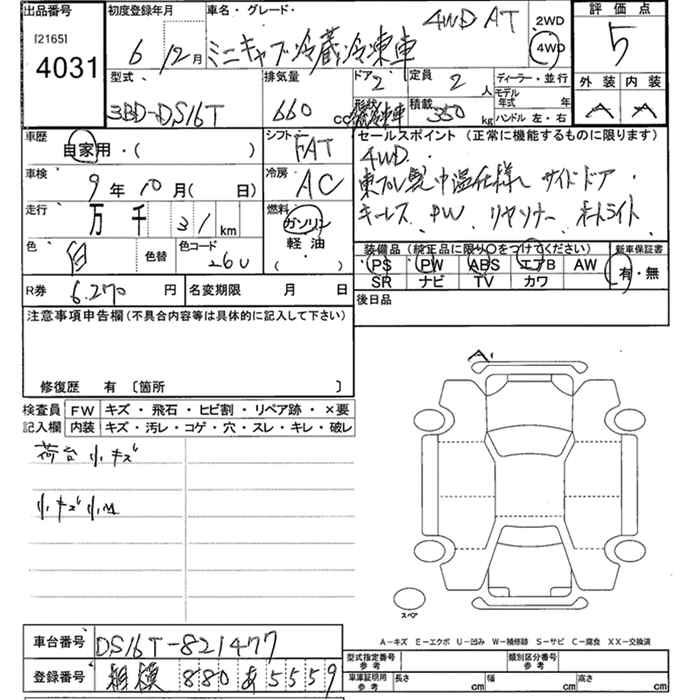 出品番号 初度登録年月 車名・グレード・ 4WD AT 2WD 評価点
[2165]
4031 6 12月 ミニキャブ冷蔵冷凍車 4WD 5
型式 排気量 ドア 定員 ディーラー・並行 外装 内装
3BD-DS16T 660 cc 2 2人 モデル年式 年 A A
形状 冷蔵冷凍車 積載 350 kg ハンドル 左・右
車歴 自家用・( ) シフト FAT セールスポイント (正常に機能するものに限ります)
車検 9年10月( 日) 冷房 AC 4WD.
東プレ製中温仕様 サイドドア・
走行 万 千 31 km 燃料 ガソリン キーレス PW リヤソナー オートライト
色 白 色替 色コード 26U 軽油 ( ) 装備品 (純正品に限り○をつけてください) 新車保証書
PS PW ABS エアB AW 有・無
R券 6,270 円 名変期限 月 日 SR ナビ TV カワ
注意事項申告欄(不具合内容等は具体的に記入して下さい) 後日品
修復歴 有 〔箇所 〕
検査員 FW キズ・飛石・ヒビ割・リペア跡・×要
記入欄 内装 キズ・汚レ・コゲ・穴・スレ・キレ・破レ
A
荷台小キズ
小キズ小凹
スペア
A-キズ E-エクボ U-凹み W-補修跡 S-サビ C-腐食 XX-交換済
車台番号 DS16T-821477
型式指定番号 参考 類別区分番号 参考
登録番号 相模 880 あ 5559
車庫証明用 参考 長さ cm 幅 cm 高さ cm